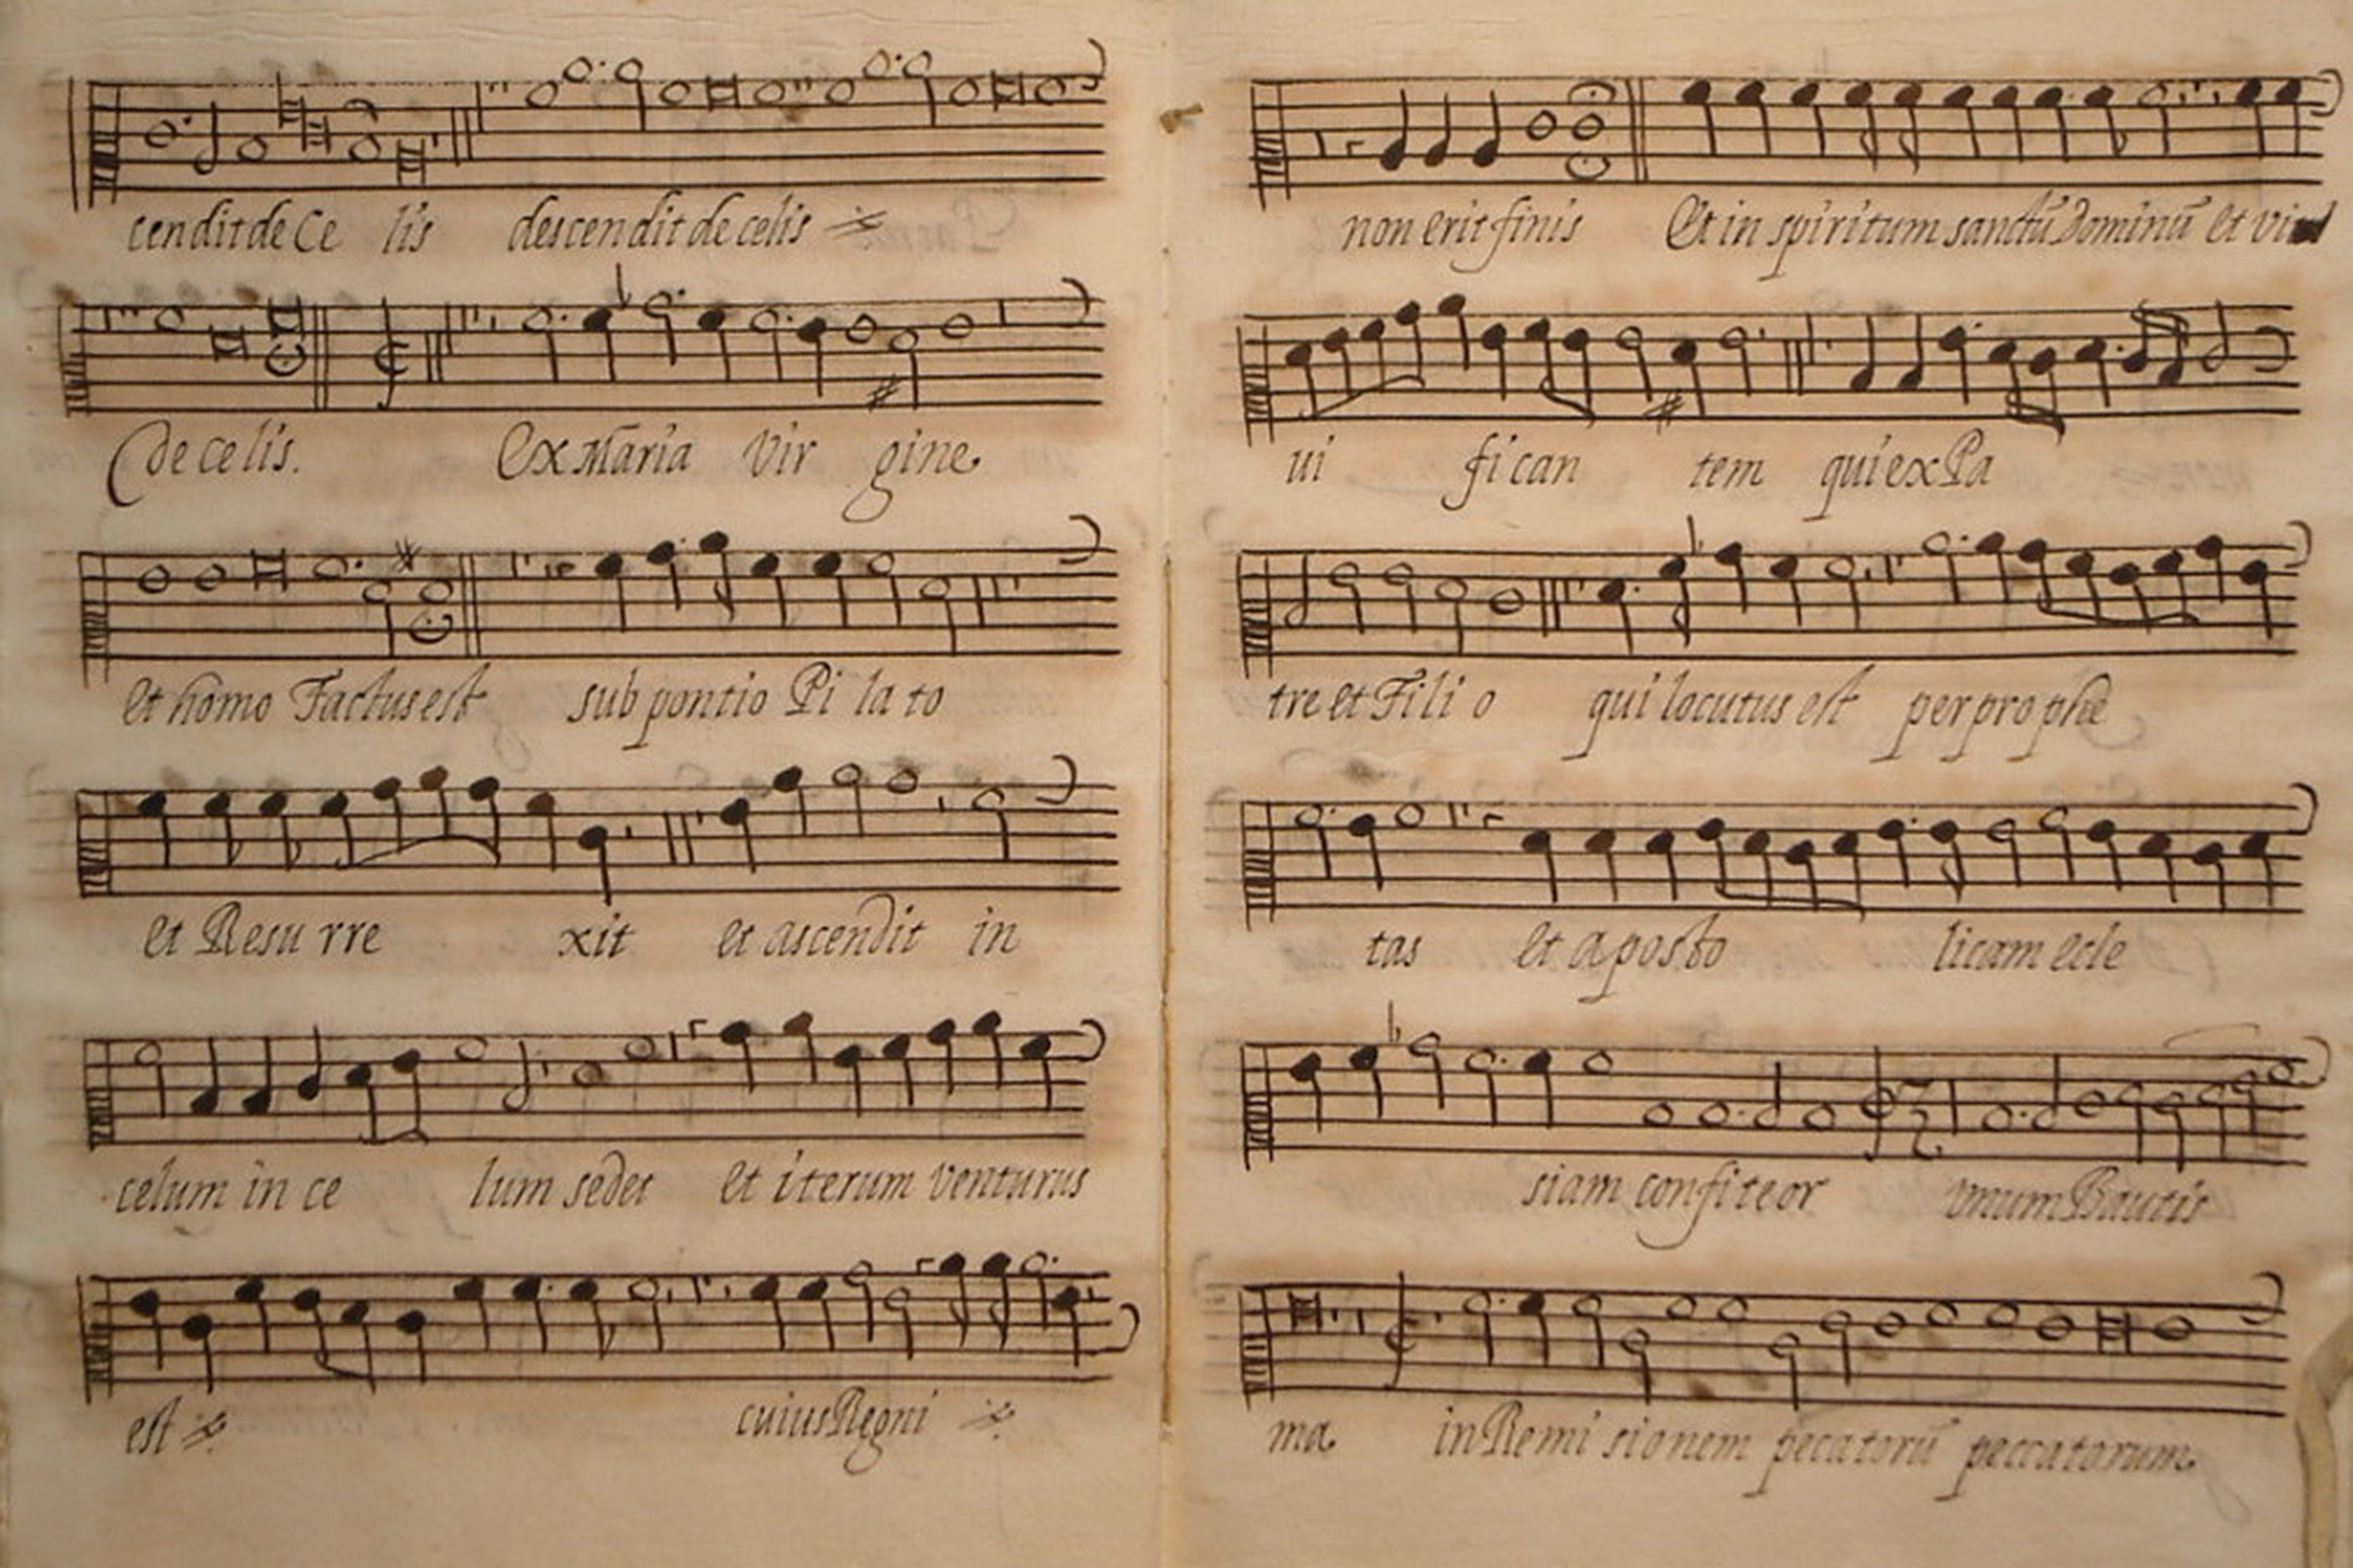 cendit de Ce lis descendit de celis
de celis. Ex Maria Vir gine
et homo Factus est sub pontio Pi la to
et Resu rre xit et ascendit in
celum in ce lum sedet et iterum venturus
est cuius Regni
non erit finis Et in spiritum sanctũ Dominũ et vi
ui fi can tem qui ex Pa
tre et Fili o qui locutus est per pro phe
tas et a posto licam ecle
siam confiteor vnum Bautis
ma in Remi sionem pecatorũ peccatorum